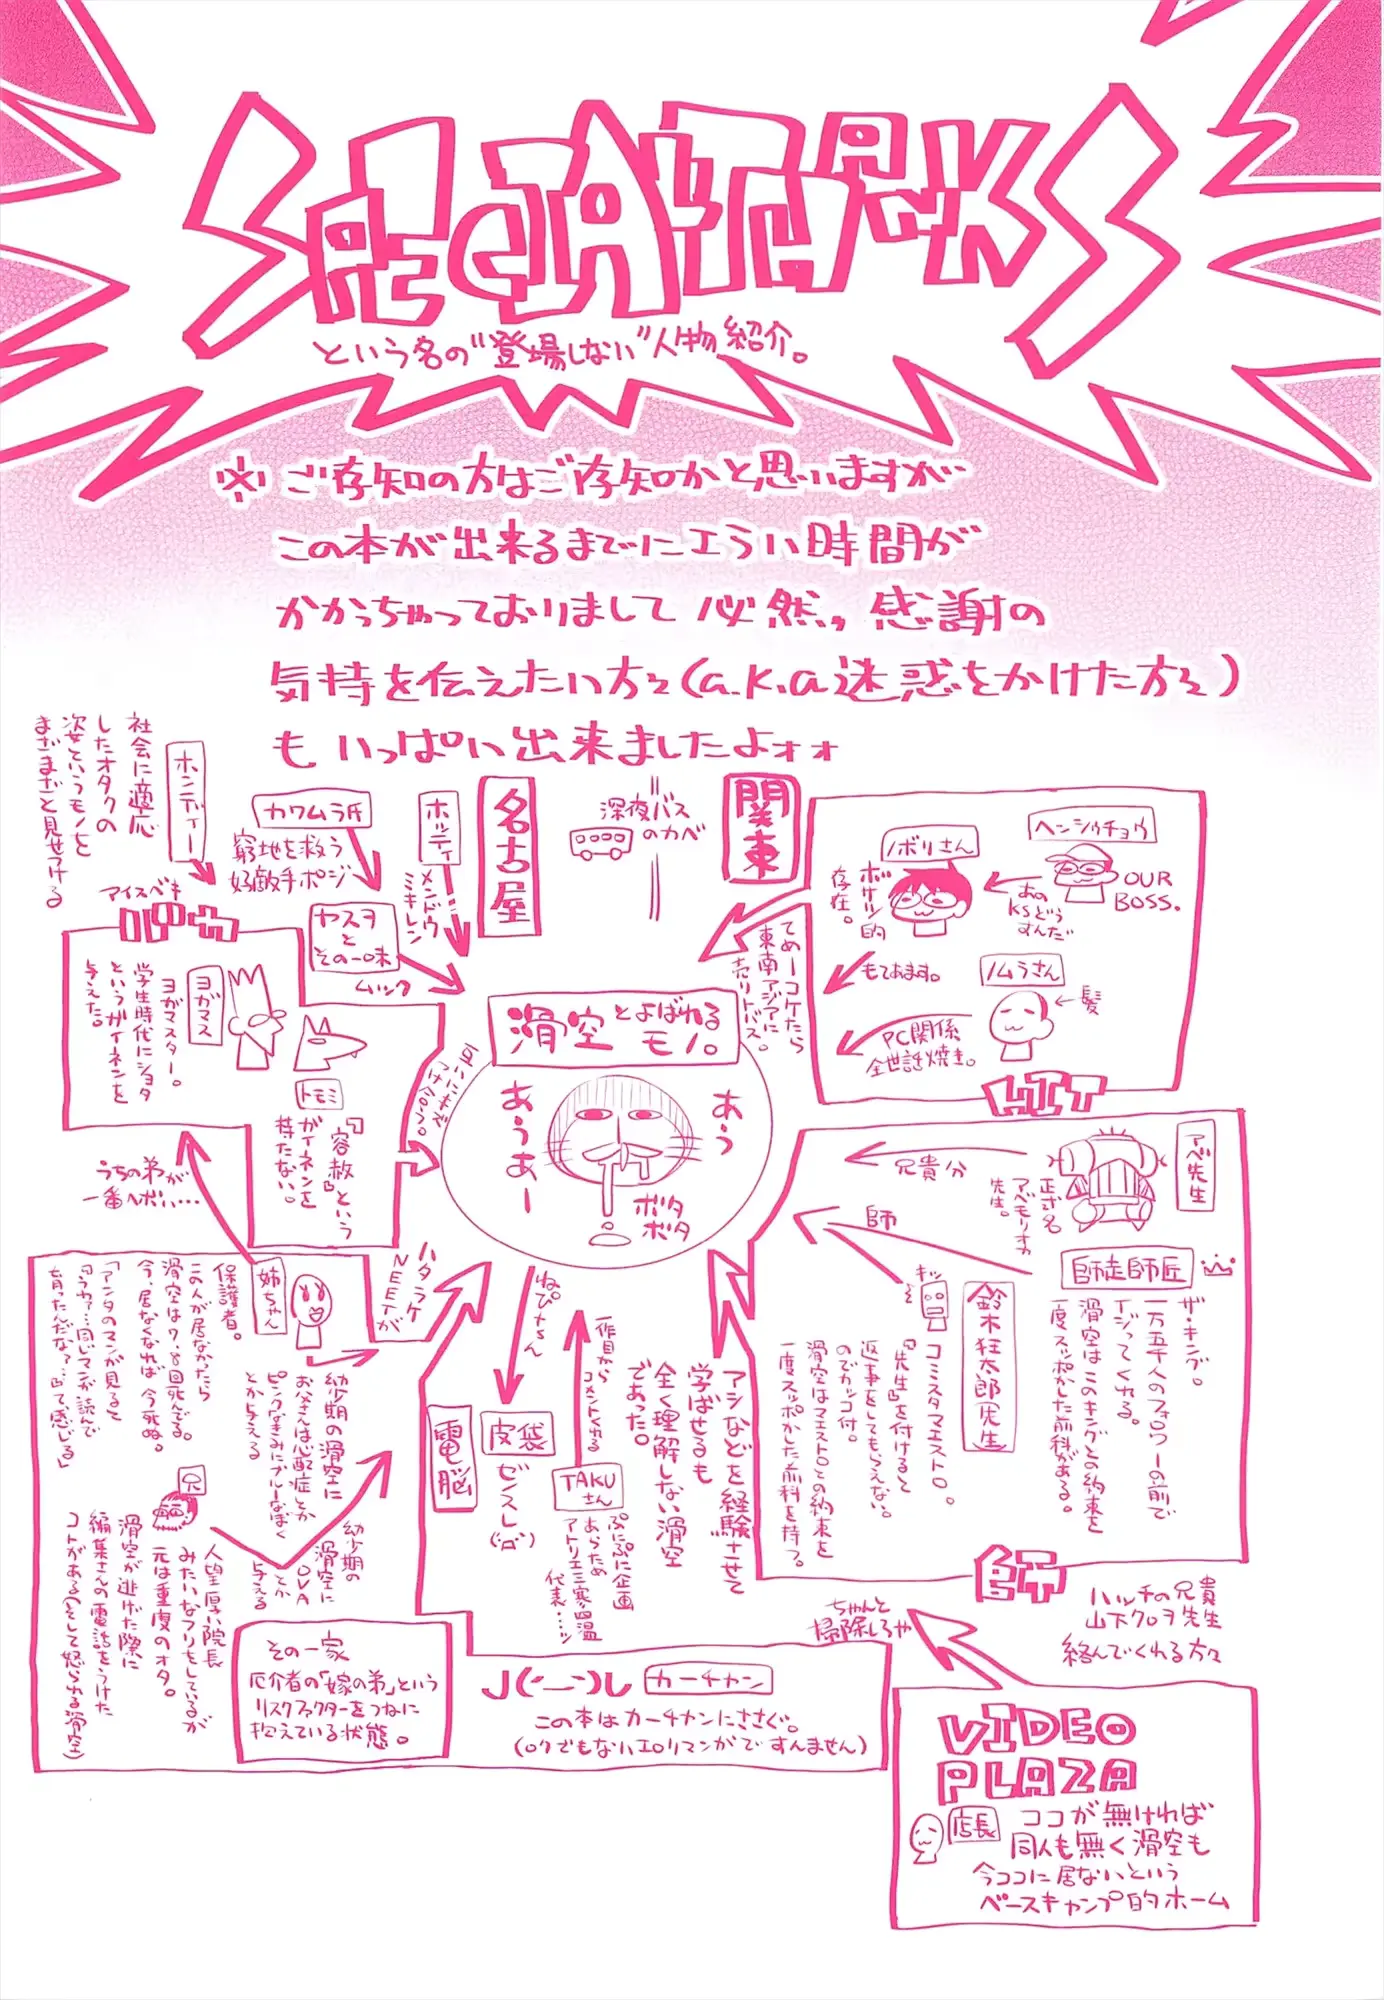 SPECIAL THANKS
という名の"登場しない"人物紹介。
※ご存知の方はご存知かと思いますが
この本が出来るまでにエラい時間が
かかっちゃっておりまして 必然、感謝の
気持を伝えたい方々(a.k.a迷惑をかけた方々)
も いっぱい出来ましたよォォ
社会に適応
したオタクの
姿というモノを
まざまざと見せつける
ホンディー
カワムラ氏
窮地を救う
好敵手ポジ
ホッティ
メンドウ
ミキレン
名古屋
深夜バス
のカベ
関東
ヘンシウチョウ
OUR
BOSS.
あの
KSどう
すんだ
ノボリさん
ボサツ的
存在。
もてあます。
ノムラさん
髪
PC関係
全世話焼き。
てめーコケたら
東南アジアに
売りトバス。
アイスベキ
ヤスヲ
と
その一味
ムック
ヨガマス
ヨガマスター。
学生時代にショタ
というガイネンを
与えた。
トモミ
『容赦』という
ガイネンを
持たない。
互いにキズ
つけ合う。
滑空とよばれる
モノ。
あう
あうあー
ボタ
ボタ
うちの弟が
一番ヘボい…
兄貴分
アベ先生
正式名
アベモリオカ
先生。
師
師走師匠
ザ・キング。
一万五千人のフォロワーの前で
イジってくれる。
滑空はこのキングとの約束を
一度スッポかした前科がある。
鈴木狂太郎(先生)
キッ
コミスタマエストロ。
『先生』を付けると
返事をしてもらえない。
のでカッコ付。
滑空はマエストロとの約束を
一度スッポかした前科を持つ。
師
ハッチの兄貴
山下クロヲ先生
絡んでくれる方々
アシなどを経験させて
学ばせるも
全く理解しない滑空
であった。
姉ちゃん
保護者。
この人が居なかったら
滑空は7、8回死んでる。
今、居なくなれば今死ぬ。
「アンタのマンガ見ると
『うわァ…同じマンガ読んで
育ったんだな?…』って感じる」
ハタラケ
NEETが
幼少期の滑空に
お父さんは心配症とか
ピンクなきみにブルーなぼく
とか与える
兄
人望厚い院長
みたいなフリをしているが
元は重度のオタ。
滑空が逃げた際に
編集さんの電話をうけた
コトがある(そして怒られる滑空)
幼少期の
滑空に
OVA
とか
与える
その一家
厄介者の「嫁の弟」という
リスクファクターをつねに
抱えている状態。
電脳
ねぴゃさん
皮袋
ゼンスレ
一作目から
コメントくれる
TAKU
さん
ぷにぷに企画
あらため
アトリエ三寒四温
代表…ッ
J(‘ー‘)し カーチャン
この本はカーチャンにささぐ。
(ロクでもないエロマンガですんません)
ちゃんと
掃除しろや
VIDEO
PLAZA
店長
ココが無ければ
同人も無く滑空も
今ココに居ないという
ベースキャンプ的ホーム